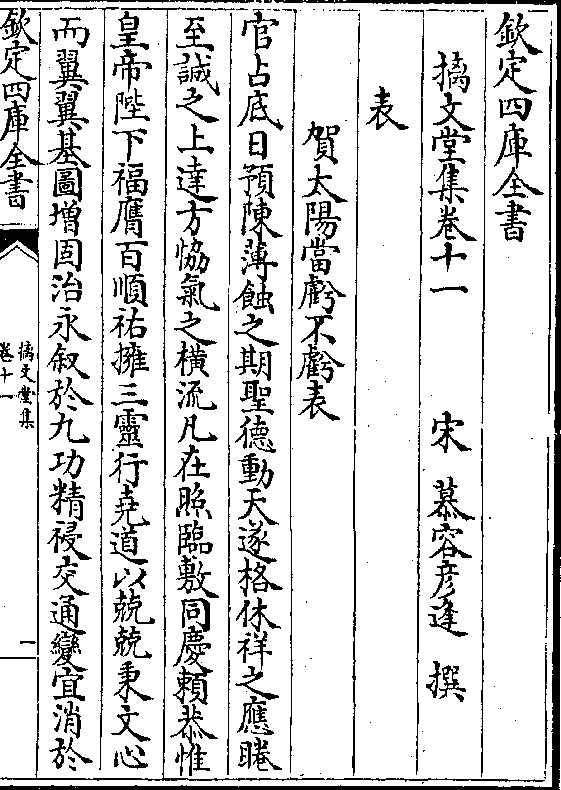 欽定四庫全書
摛文堂集卷十一 宋 慕容彦逢 撰
表
賀太陽當虧不虧表
官占底日預陳薄蝕之期聖德動天遂格休祥之應睠
至誠之上達方恊氣之横流凡在照臨敷同慶賴恭惟
皇帝陛下福膺百順祐擁三靈行堯道以兢兢秉文心
而翼翼基圖增固治永叙於九功精祲交通變宜消於
欽定四庫全書
摛文堂集
卷十一
一